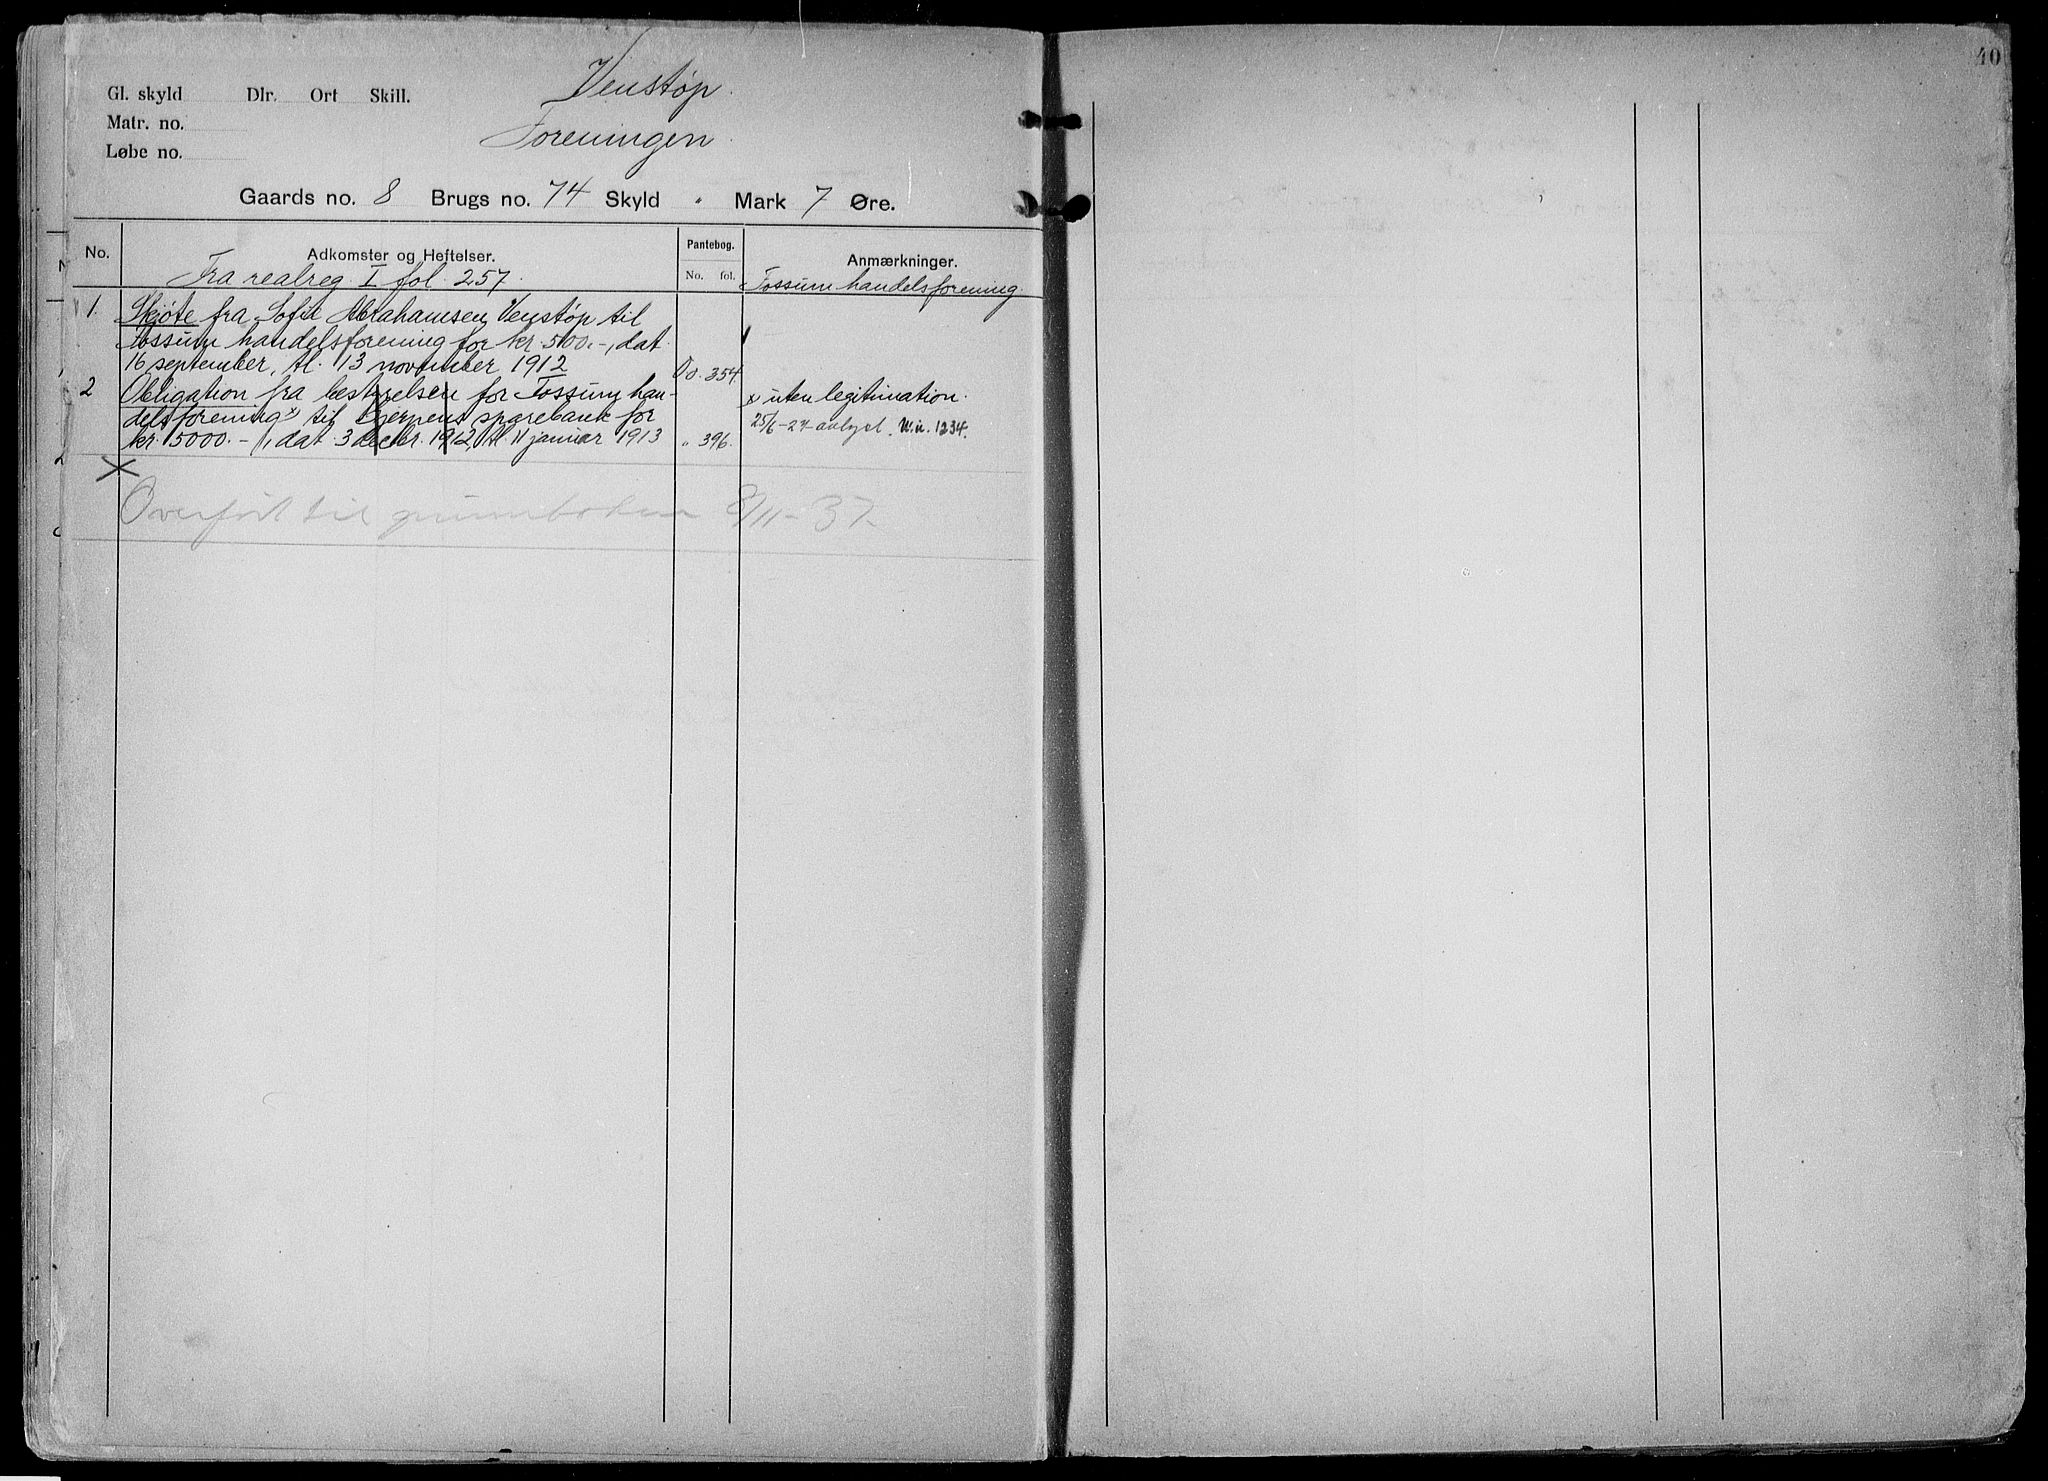 40
Gl. skyld Dlr. Ort Skill.
Matr. no.
Løbe no.
Venstøp.
Foreningen.
Gaards no. 8 Brugs no. 74 Skyld " Mark 7 Øre.
No. Adkomster og Heftelser. Pantebog. No. fol. Anmærkninger.
Fra realreg. I fol. 257. Fossum handelsforening.
1. Skjøte fra Sofie Abrahamsen, Venstøp til
Fossum handelsforening for kr. 500.-, dat.
16 september, tl. 13 november 1912 Oo. 354.
2 Obligation fra bestyrelsen for Fossum han-
delsforening x til Gjerpens sparebank for
kr. 5000.-, dat. 3 decbr. 1912, tl. 11 januar 1913 " 396.
x uten legitimation.
25/6-27 avlyst. W.u. 1234.
Overført til grunnboken 8/11-37.